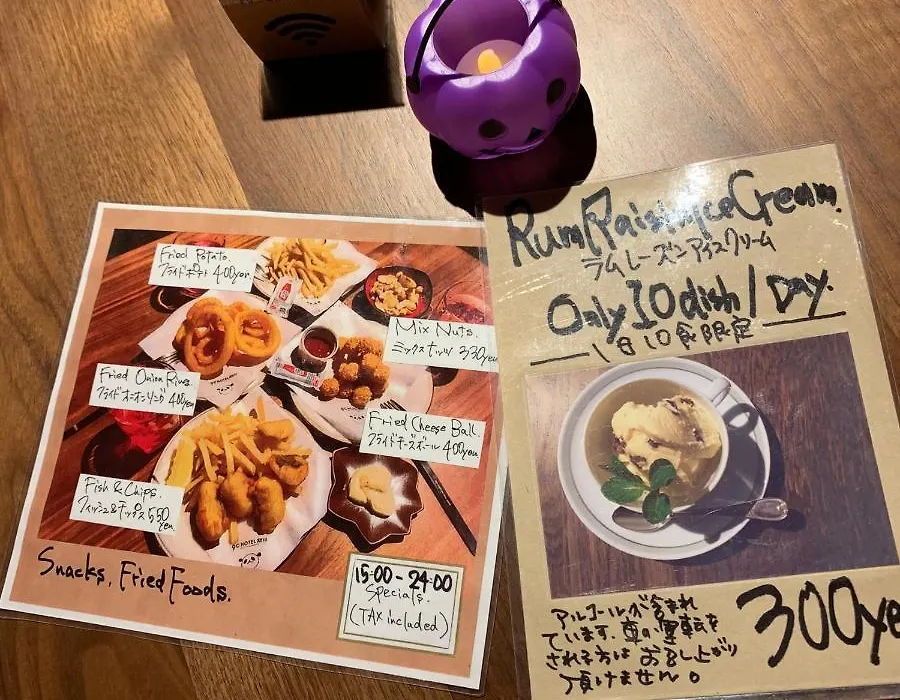 Fried Potato.
フライドポテト 400yen
Mix Nuts.
ミックスナッツ 330yen
Fried Onion Rings.
フライドオニオンリング 400yen
Fried Cheese Ball.
フライドチーズボール 400yen
Fish & Chips.
フィッシュ&チップス 550
yen.
Snacks, Fried Foods.
15:00-24:00
Specials.
(TAX included)
Rum Raisin Ice Cream.
ラムレーズンアイスクリーム
Only 10 dish / Day.
1日10食限定
アルコールが含まれ
ています。車の運転を
される方はお召し上がり
頂けません。
300ye